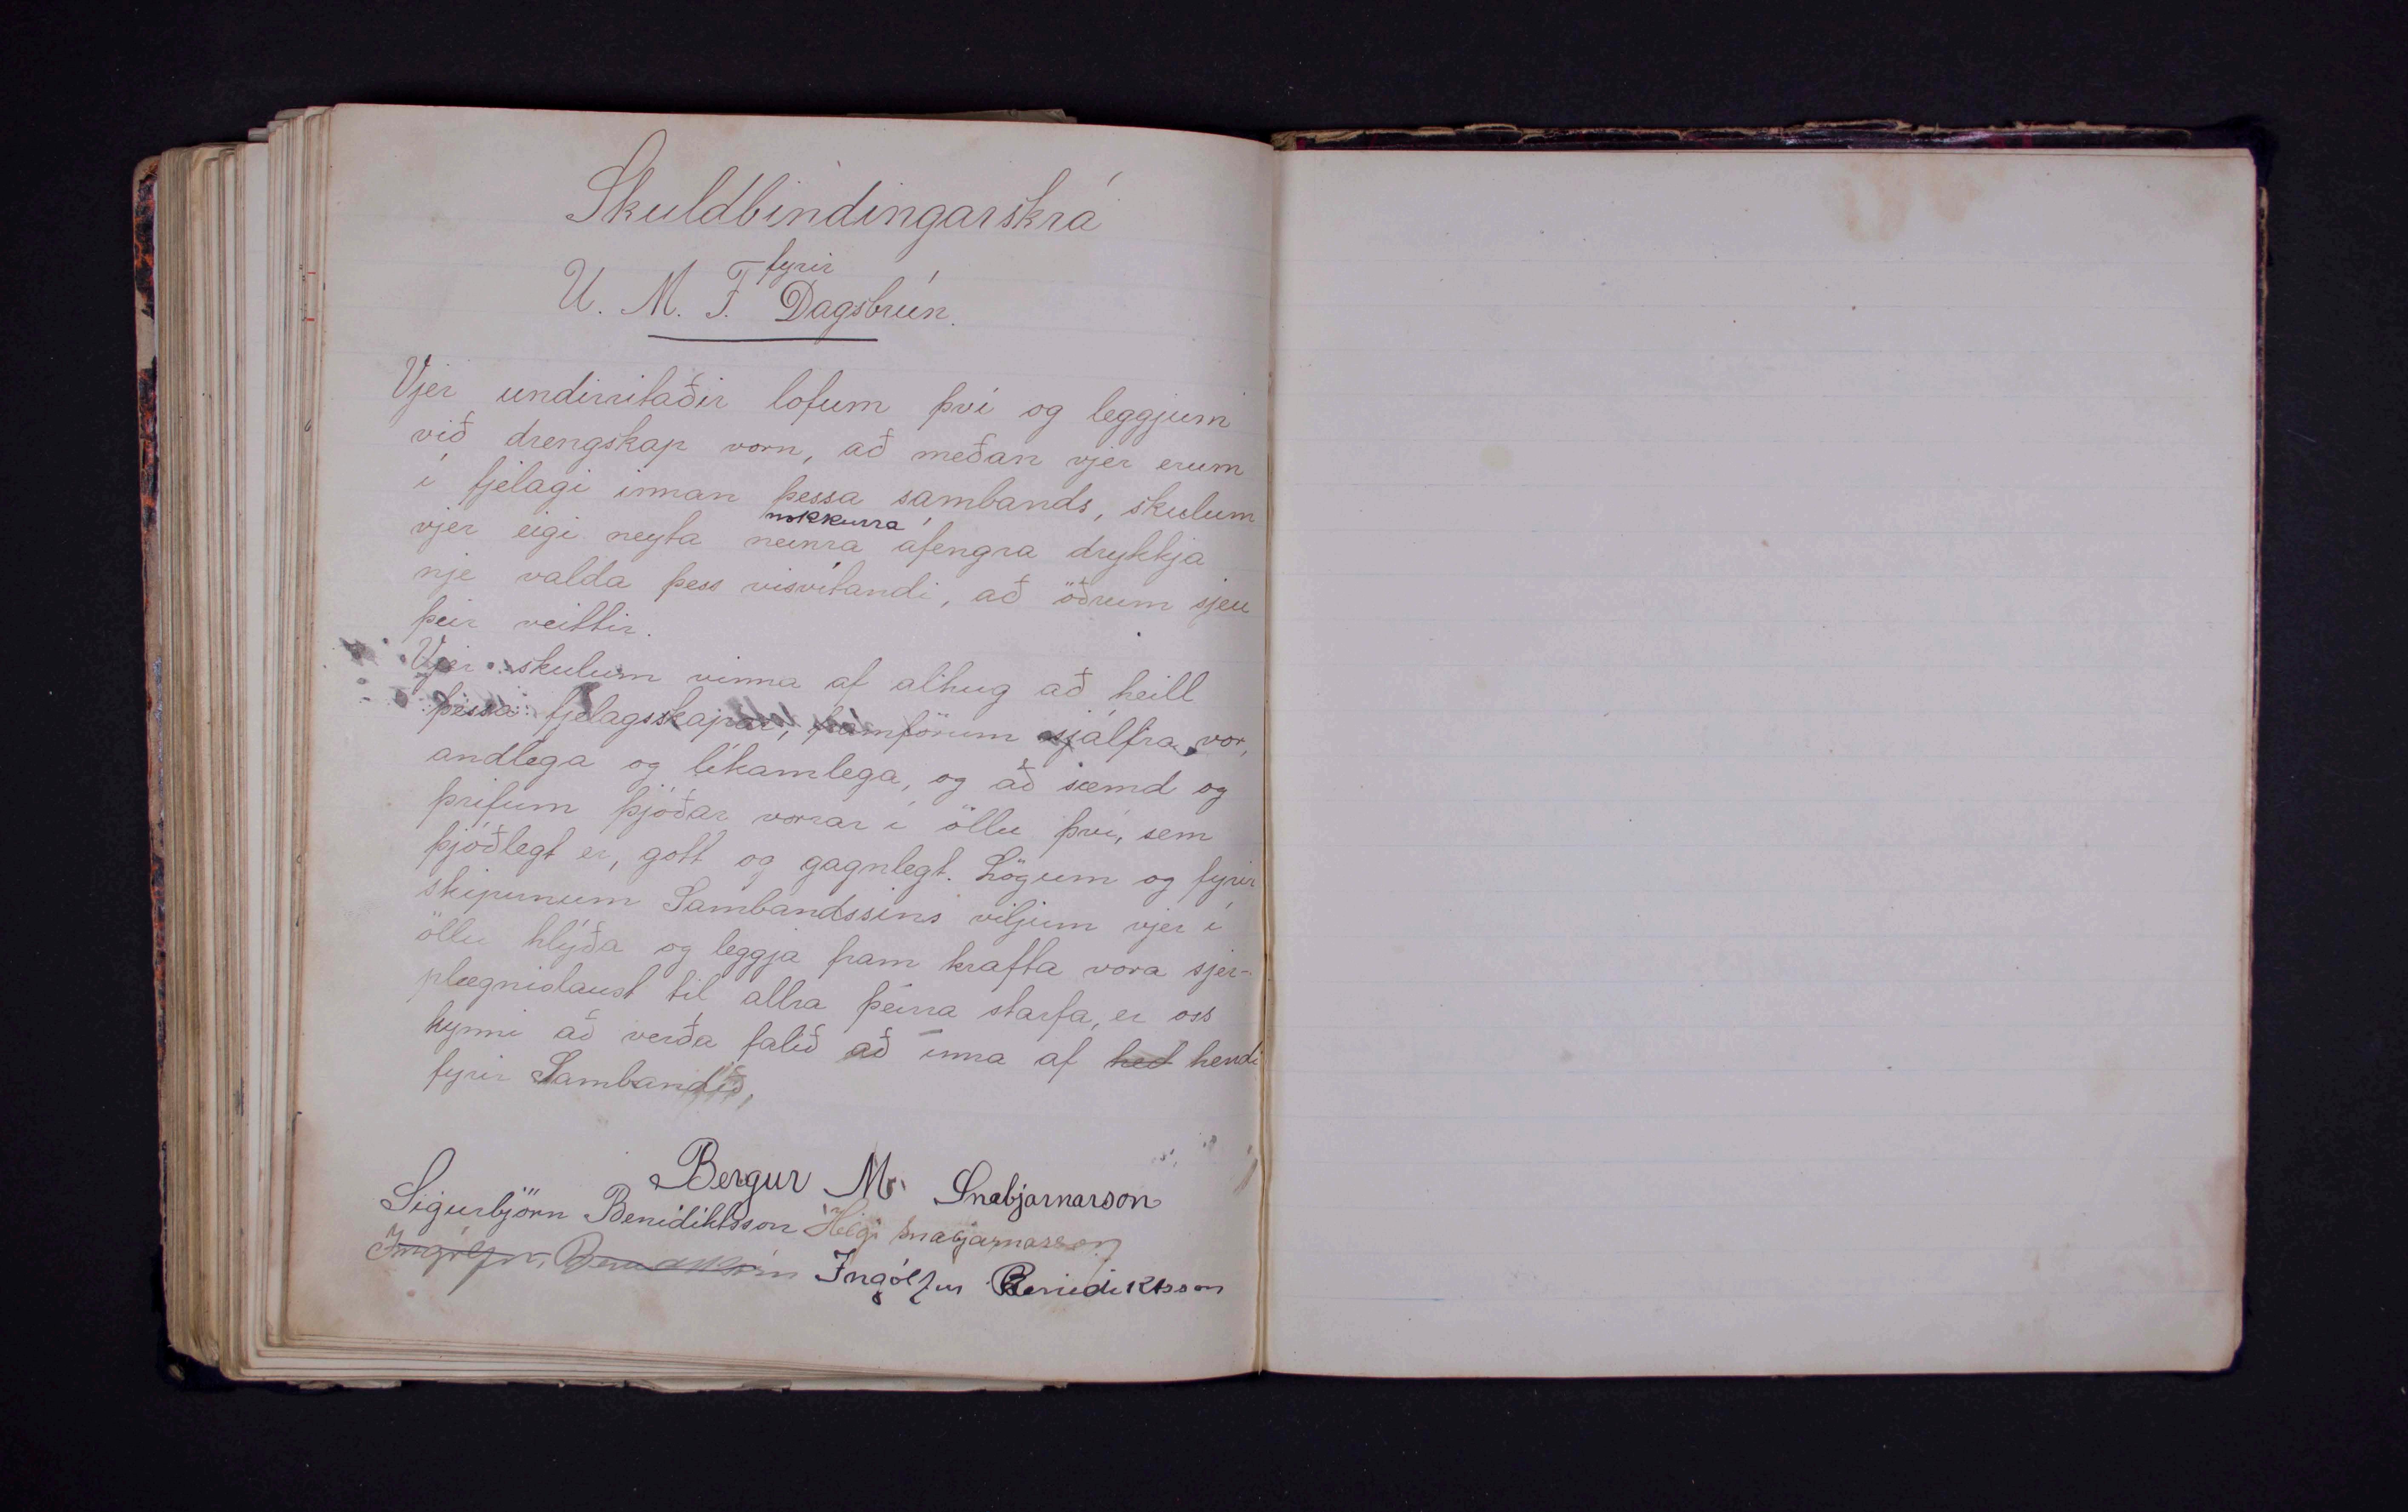 Skuldbindingarskrá
fyrir
U. M. F. Dagsbrún.
Vjer undirritaðir lofum því og leggjum
við drengskap vorn, að meðan vjer erum
í fjelagi innan þessa sambands, skulum
nokkurra
vjer eigi neyta neinra áfengra drykkja
nje valda þess visvítandi, að öðrum sjeu
þeir veittir.
Vjer skulum vinna af alhug að heill
þessa fjelagsskapar, framförum sjálfra vor,
andlega og líkamlega, og að sæmd og
þrifum þjóðar vorrar í öllu því, sem
þjóðlegt er, gott og gagnlegt. Lögum og fyrir
skipunum Sambandssins viljum vjer í
öllu hlýða og leggja fram krafta vora sjer-
plægnislaust til allra þeirra starfa, er oss
kynni að verða falið að inna af hed hendi
fyrir Sambandið,
Bergur M. Snæbjarnarson
Sigurbjörn Benidiktsson Helgi Snæbjarnarson
Ingólfur Benidiktsson Ingólfur Benidiktsson